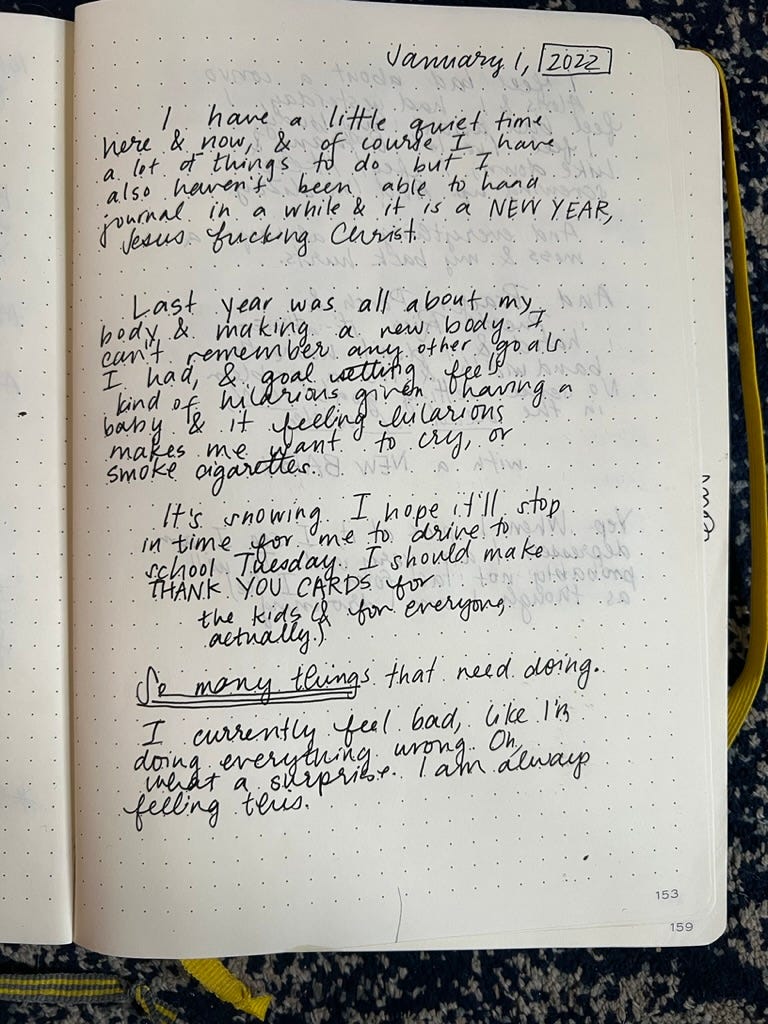 January 1, 2022
I have a little quiet time
here & now, & of course I have
a lot of things to do but I
also haven't been able to hand
journal in a while & it is a NEW YEAR,
Jesus fucking Christ.
Last year was all about my
body & making a new body. I
can't remember any other goals
I had, & goal setting feels
kind of hilarious given having a
baby & it feeling hilarious
makes me want to cry, or
smoke cigarettes.
It's snowing. I hope it'll stop
in time for me to drive to
school Tuesday. I should make
THANK YOU CARDS for
the kids (& for everyone,
actually.)
So many things that need doing.
I currently feel bad, like I'm
doing everything wrong. Oh,
what a surprise. I am always
feeling this.
153
159